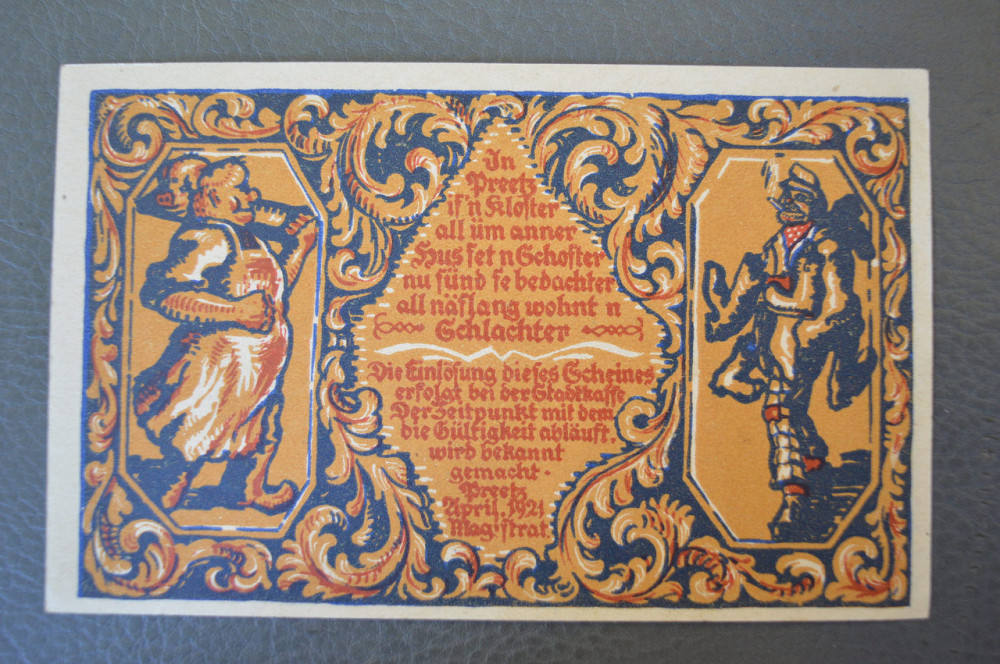 In
Preetz
is'n Kloster
all üm anner
Hus set n Schoster
nu sünd se bedachter
all näslang wohnt n
Schlachter
Die Einlösung dieses Scheines
erfolgt bei der Stadtkasse
Der Zeitpunkt mit dem
die Gültigkeit abläuft,
wird bekannt
gemacht.
Preetz
April, 1921
Magistrat.